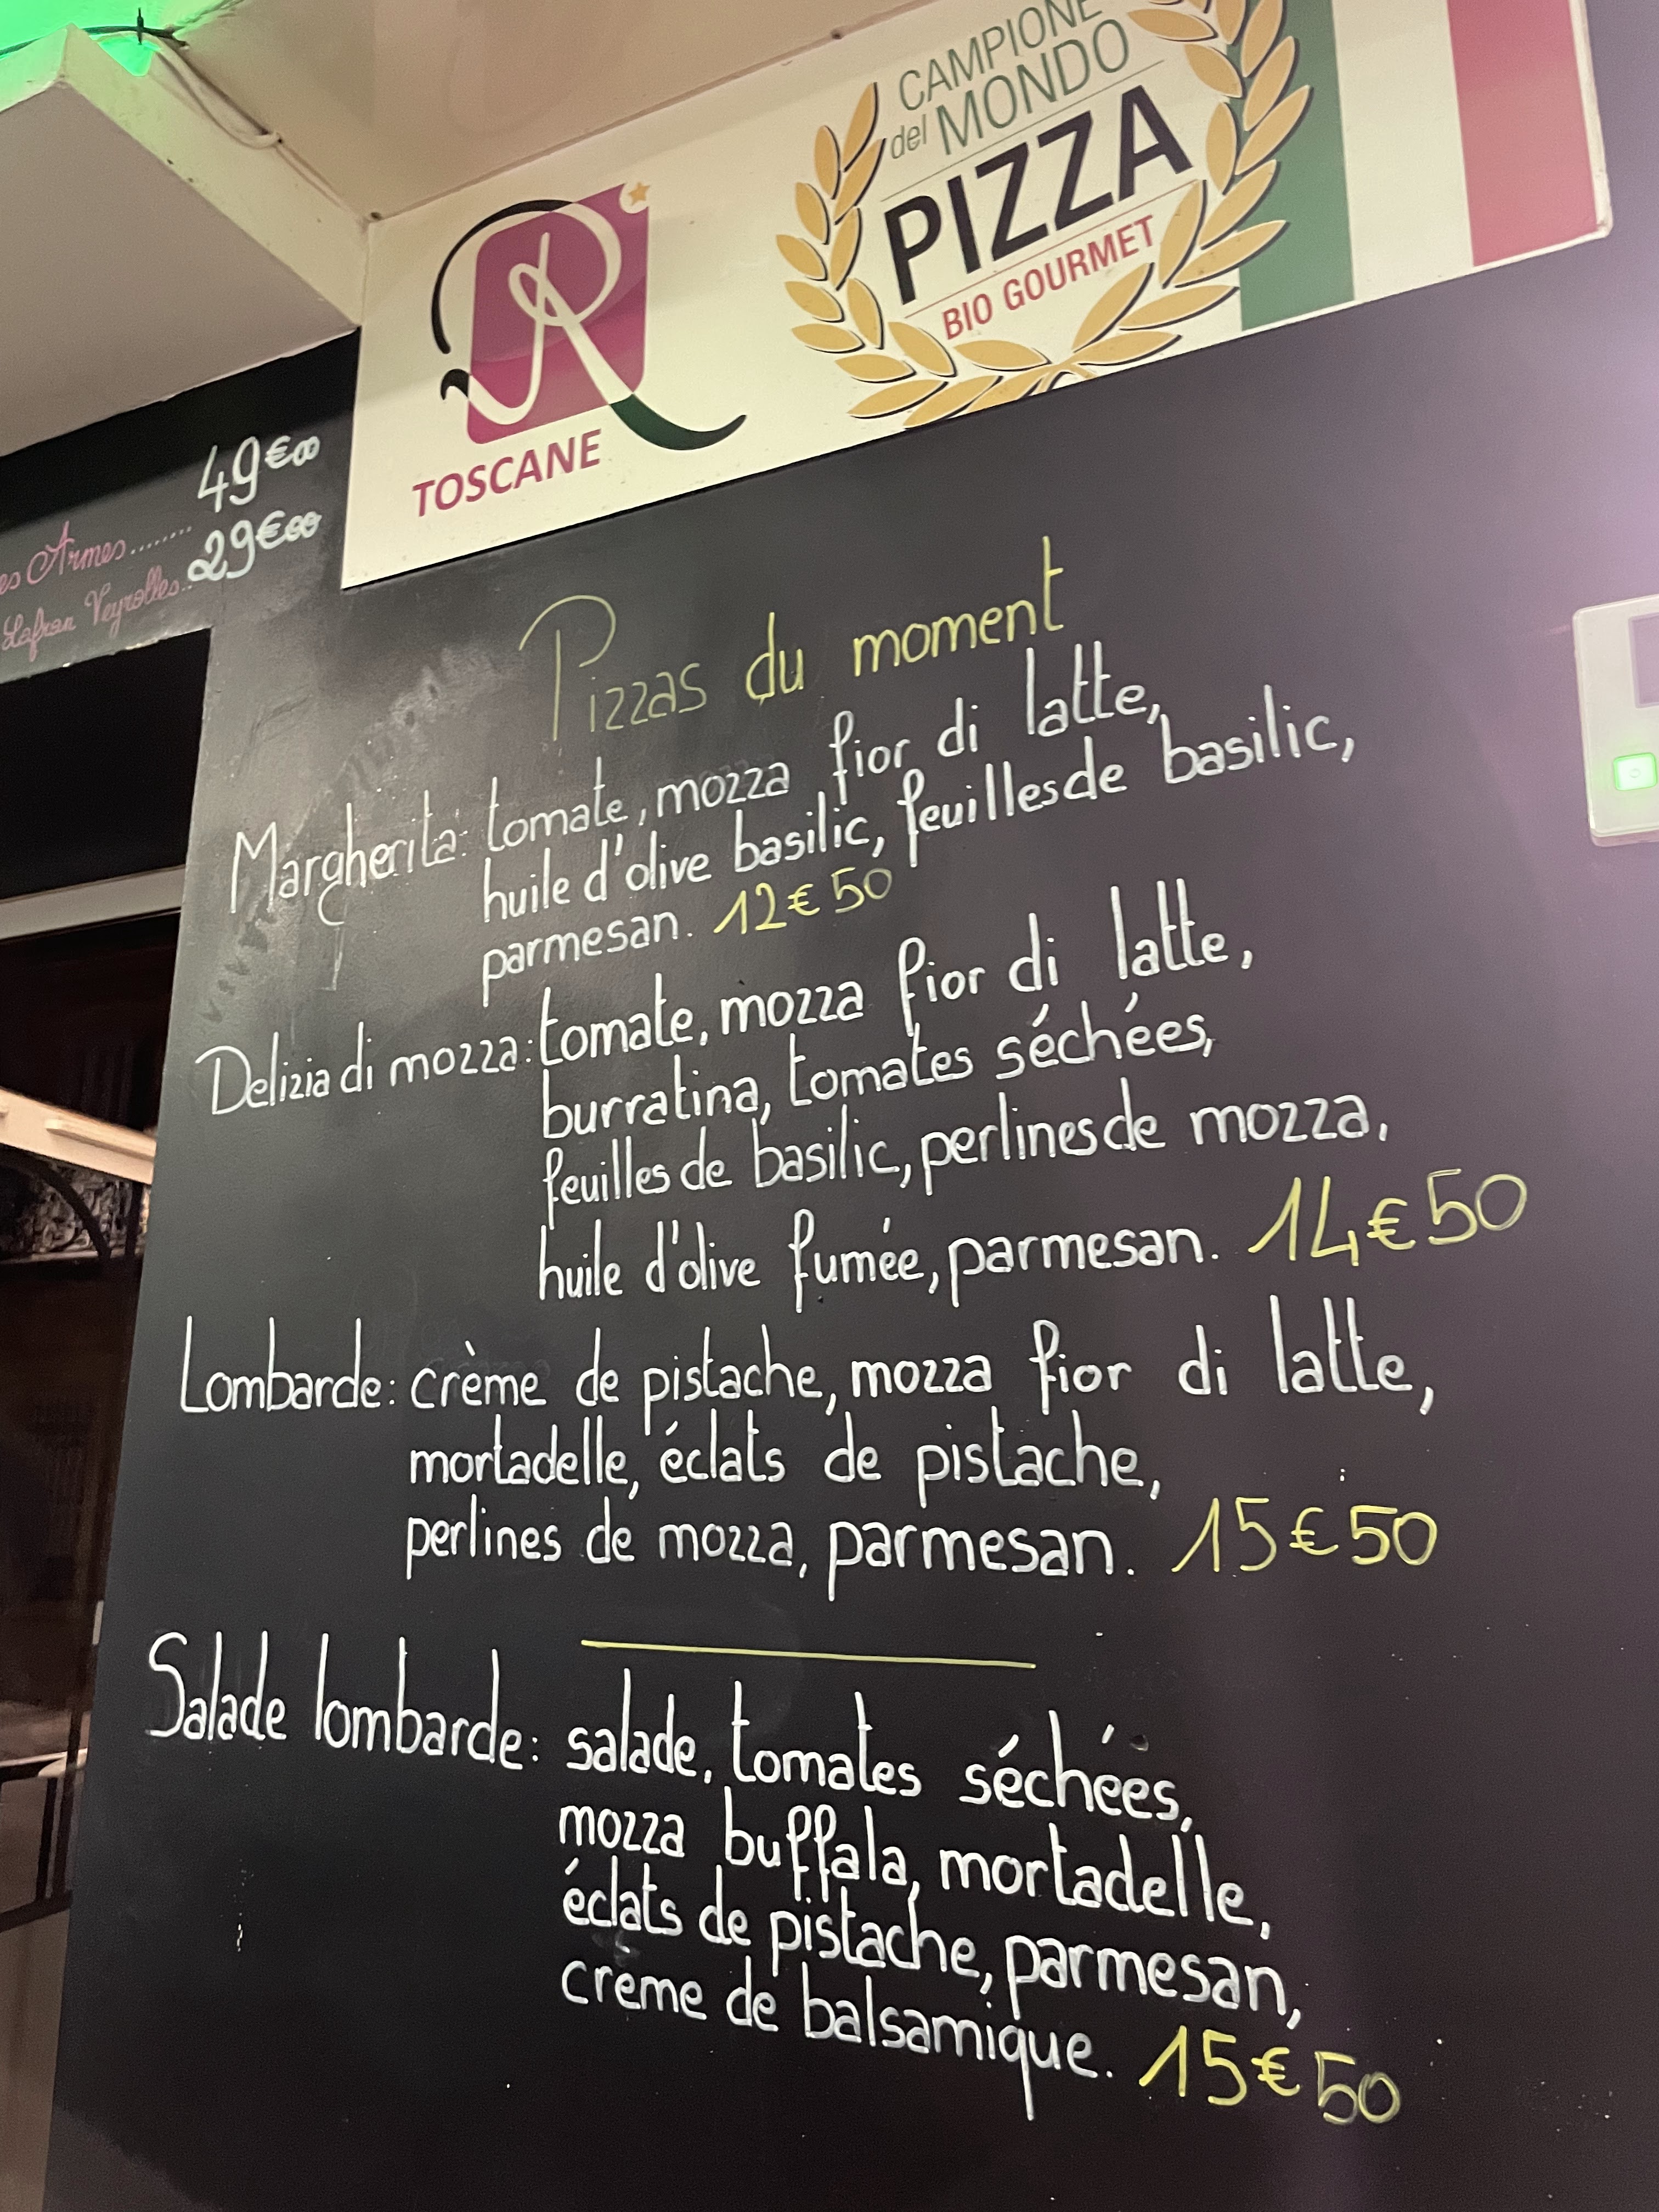 CAMPIONE
del MONDO
PIZZA
BIO GOURMET
R
TOSCANE
49€00
es Armes........ 29€00
Lafran Veyrolles..
Pizzas du moment
Margherita: tomate, mozza fior di latte,
huile d'olive basilic, feuilles de basilic,
parmesan. 12€50
Delizia di mozza: tomate, mozza fior di latte,
burratina, tomates séchées,
feuilles de basilic, perlines de mozza,
huile d'olive fumée, parmesan. 14€50
Lombarde: crème de pistache, mozza fior di latte,
mortadelle, éclats de pistache,
perlines de mozza, parmesan. 15€50
Salade lombarde: salade, tomates séchées,
mozza buffala, mortadelle,
éclats de pistache, parmesan,
crème de balsamique. 15€50